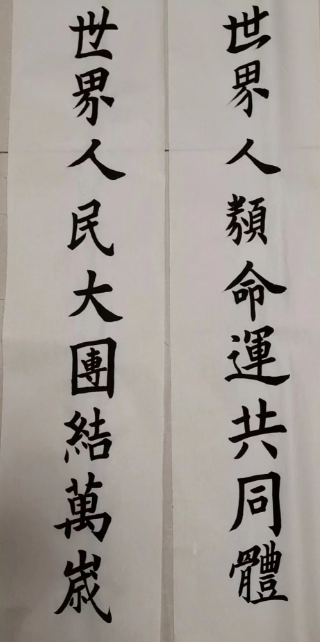 世界人類命運共同體
世界人民大團結萬歲